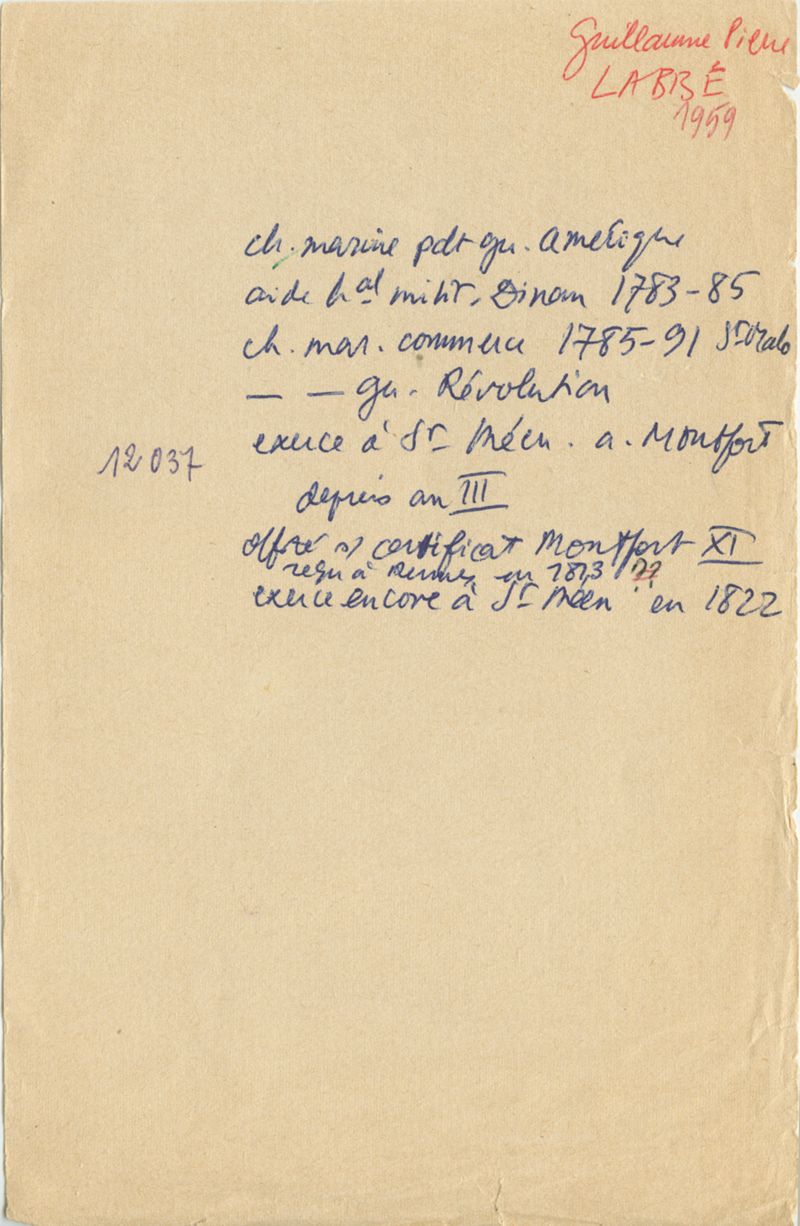 Guillaume Pierre
LABBÉ
1959
ch. marine pdt gu. Amérique
aide hal milit. Dinan 1783-85
ch. mar. commerce 1785-91 St Malo
— — gu. Révolution
exerce à St Méen. a. Montfort
12037
depuis an III
certificat Montfort XI
reçu à Rennes en 1813 ??
exerce encore à St Méen en 1822